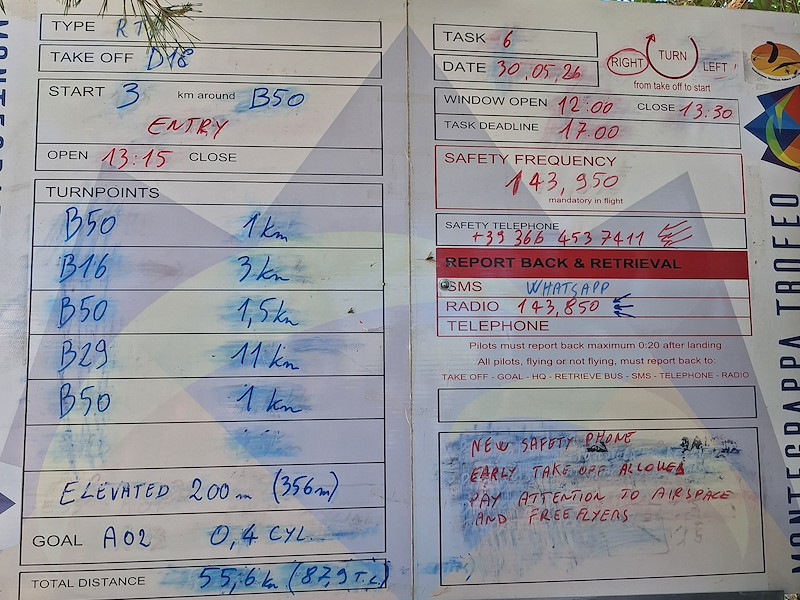 TYPE
TAKE OFF D18
START 3 km around B50
ENTRY
OPEN 13:15 CLOSE
TURNPOINTS
B50 1 km
B16 3 km
B50 1,5 km
B29 11 km
B50 1 km
ELEVATED 200 m (356m)
GOAL A02 0,4 CYL.
TOTAL DISTANCE 55,6 km (87,9 T.C)
TASK 6
DATE 30,05,26
RIGHT TURN LEFT
from take off to start
WINDOW OPEN 12:00 CLOSE 13:30
TASK DEADLINE 17.00
SAFETY FREQUENCY
143,950
mandatory in flight
SAFETY TELEPHONE
+39 366 4537411
REPORT BACK & RETRIEVAL
SMS WHATSAPP
RADIO 143,850
TELEPHONE
Pilots must report back maximum 0:20 after landing
All pilots, flying or not flying, must report back to:
TAKE OFF - GOAL - HQ - RETRIEVE BUS - SMS - TELEPHONE - RADIO
NEW SAFETY PHONE
EARLY TAKE OFF ALLOWED
PAY ATTENTION TO AIRSPACE
AND FREEFLYERS
MONTEGRAPPA TROFEO